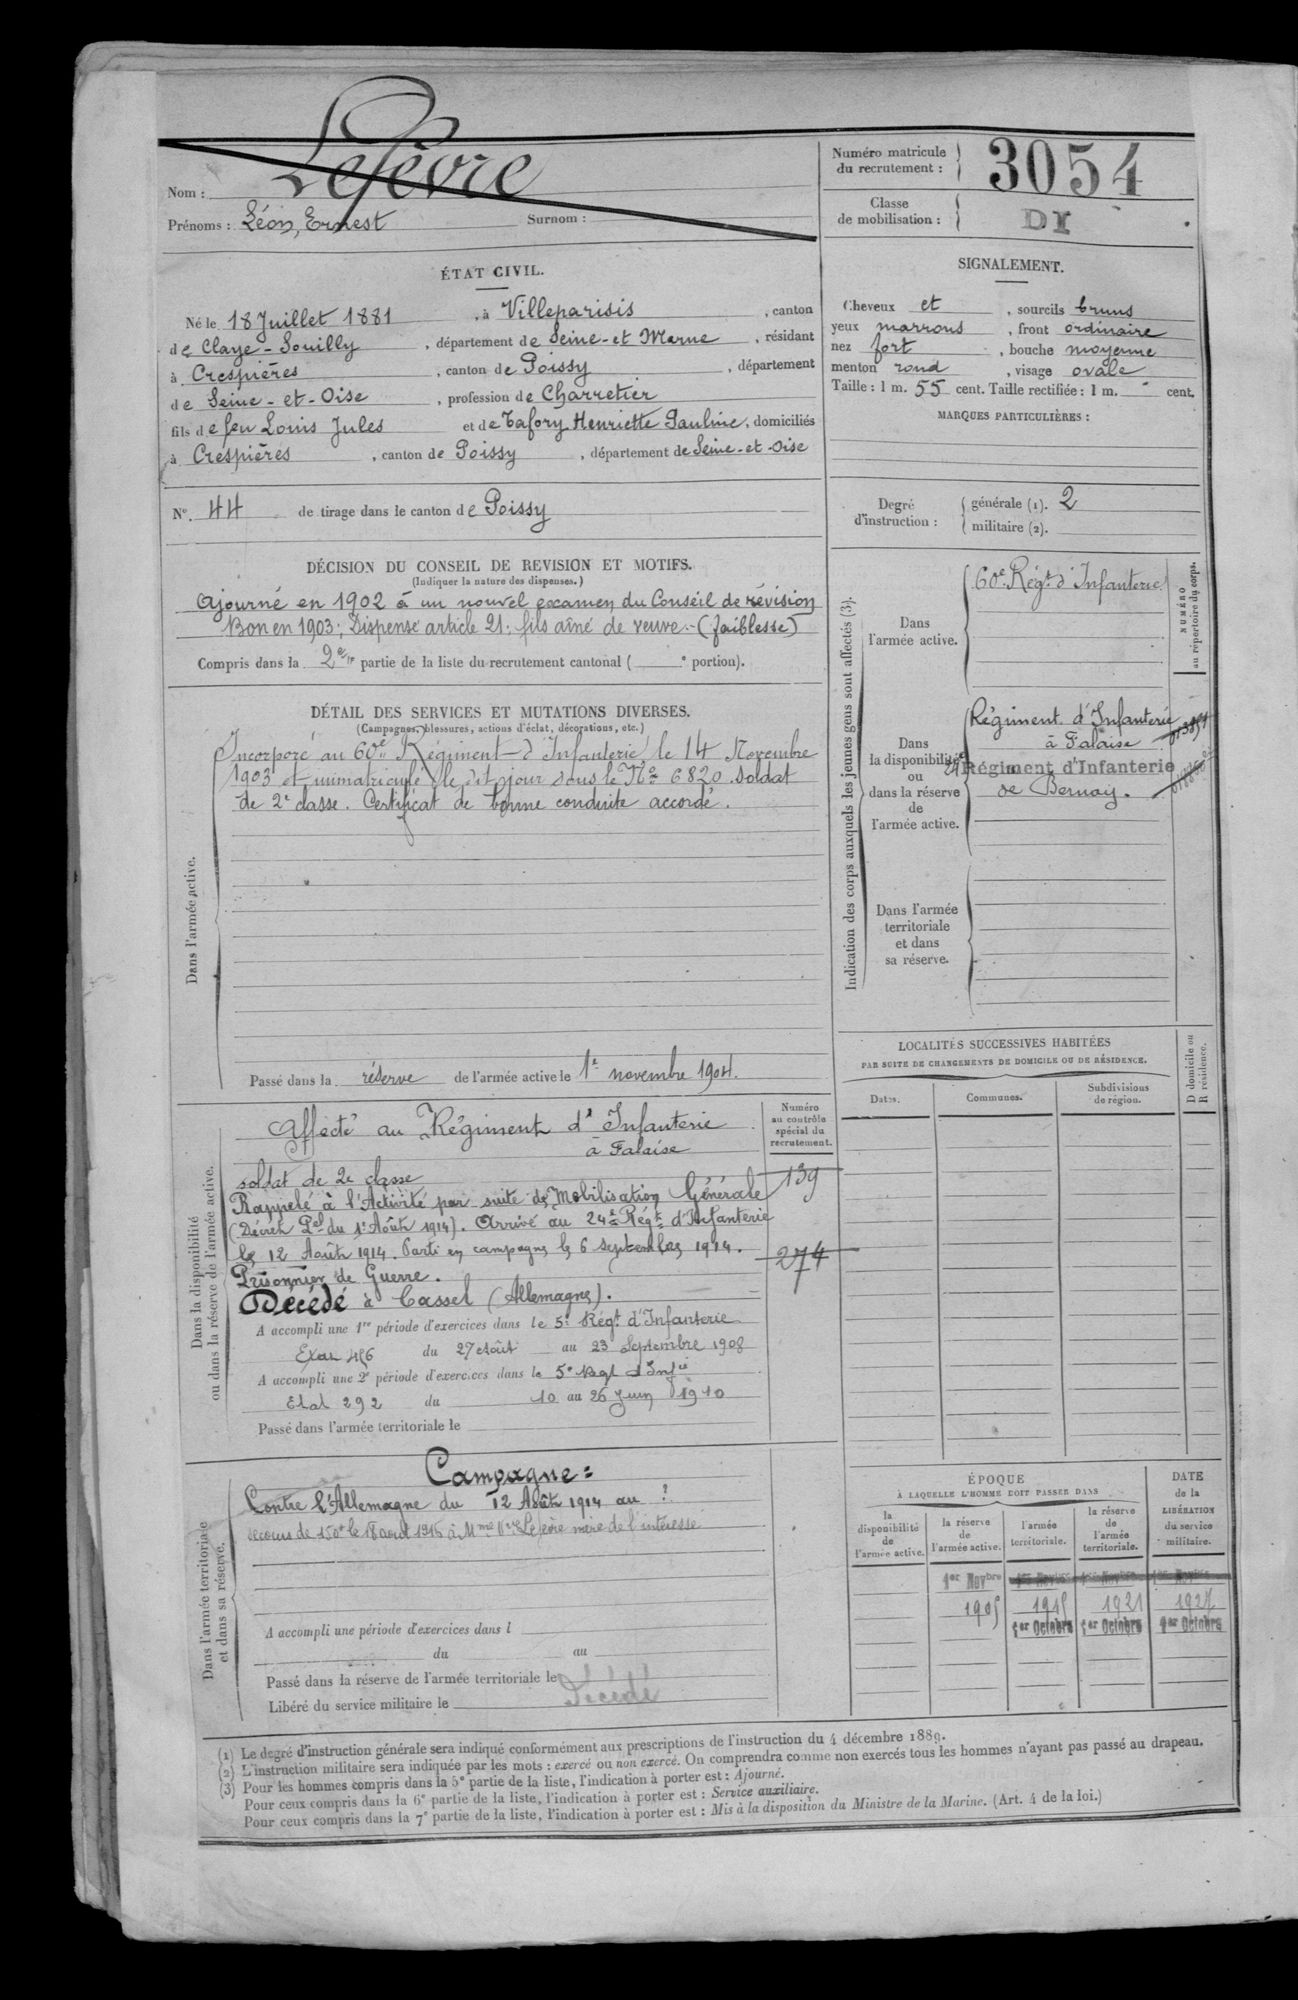 Nom : Lefèvre
Prénoms : Léon, Ernest Surnom :
Numéro matricule du recrutement : 3054
Classe de mobilisation : DI
ÉTAT CIVIL.
Né le 18 Juillet 1881, à Villeparisis, canton
de Claye-Souilly, département de Seine-et Marne, résidant
à Crespières, canton de Poissy, département
de Seine-et-Oise, profession de Charretier
fils de feu Louis Jules et de Tafory Henriette Pauline, domiciliés
à Crespières, canton de Poissy, département de Seine-et-Oise
SIGNALEMENT.
Cheveux et, sourcils bruns
yeux marrons, front ordinaire
nez fort, bouche moyenne
menton rond, visage ovale
Taille : 1 m. 55 cent. Taille rectifiée : 1 m. cent.
MARQUES PARTICULIÈRES :
N° 44 de tirage dans le canton de Poissy
Degré d'instruction :
générale (1). 2
militaire (2).
DÉCISION DU CONSEIL DE REVISION ET MOTIFS.
(Indiquer la nature des dispenses.)
Ajourné en 1902 à un nouvel examen du Conseil de révision
Bon en 1903; Dispensé article 21: fils aîné de veuve.- (faiblesse)
Compris dans la 2e partie de la liste du recrutement cantonal ( e portion).
DÉTAIL DES SERVICES ET MUTATIONS DIVERSES.
(Campagnes, blessures, actions d'éclat, décorations, etc.)
Dans l'armée active.
Incorporé au 60e Régiment d'Infanterie le 14 Novembre
1903 et immatriculé le dit jour sous le No 6820. Soldat
de 2e classe. Certificat de bonne conduite accordé.
Passé dans la réserve de l'armée active le 1e novembre 1904.
Indication des corps auxquels les jeunes gens sont affectés (3).
NUMÉRO au répertoire du corps.
Dans l'armée active.
60e Régt d'Infanterie
Dans la disponibilité ou dans la réserve de l'armée active.
Régiment d'Infanterie
à Falaise
24 Régiment d'Infanterie
de Bernay.
Dans l'armée territoriale et dans sa réserve.
LOCALITÉS SUCCESSIVES HABITÉES
PAR SUITE DE CHANGEMENTS DE DOMICILE OU DE RÉSIDENCE.
Dates. Communes. Subdivisions de région. D domicile ou R résidence.
Dans la disponibilité ou dans la réserve de l'armée active.
Numéro au contrôle spécial du recrutement.
139
274
Affecté au Régiment d'Infanterie
à Falaise
soldat de 2e classe
Rappelé à l'Activité par suite de Mobilisation Générale
(Décret Pel du 1e Août 1914). Arrivé au 24e Régt d'Infanterie
le 12 Août 1914. Parti en campagne le 6 septembre 1914.
Prisonnier de Guerre.
Décédé à Cassel (Allemagne).
A accompli une 1re période d'exercices dans le 5e Régt d'Infanterie
du 27 Août au 23 Septembre 1908
A accompli une 2e période d'exercices dans le 5e Regt d'Infie
Etat 292 du 10 au 26 Juin 1910
Passé dans l'armée territoriale le
Dans l'armée territoriale et dans sa réserve.
Campagne :
Contre l'Allemagne du 12 Août 1914 au ?
secours de 150f le 18 août 1915 à Mme Vve Lefèvre mère de l'intéressé
A accompli une période d'exercices dans l
du au
Passé dans la réserve de l'armée territoriale le
Libéré du service militaire le Décédé
ÉPOQUE
À LAQUELLE L'HOMME DOIT PASSER DANS
la disponibilité de l'armée active.
la réserve de l'armée active.
l'armée territoriale.
la réserve de l'armée territoriale.
DATE de la LIBÉRATION du service militaire.
1er Novbre 1er Novbre 1er Novbre 1er Novbre
1905 1915 1921 1927
1er Octobre 1er Octobre 1er Octobre
(1) Le degré d'instruction générale sera indiqué conformément aux prescriptions de l'instruction du 4 décembre 1889.
(2) L'instruction militaire sera indiquée par les mots : exercé ou non exercé. On comprendra comme non exercés tous les hommes n'ayant pas passé au drapeau.
(3) Pour les hommes compris dans la 5e partie de la liste, l'indication à porter est : Ajourné.
Pour ceux compris dans la 6e partie de la liste, l'indication à porter est : Service auxiliaire.
Pour ceux compris dans la 7e partie de la liste, l'indication à porter est : Mis à la disposition du Ministre de la Marine. (Art. 4 de la loi.)